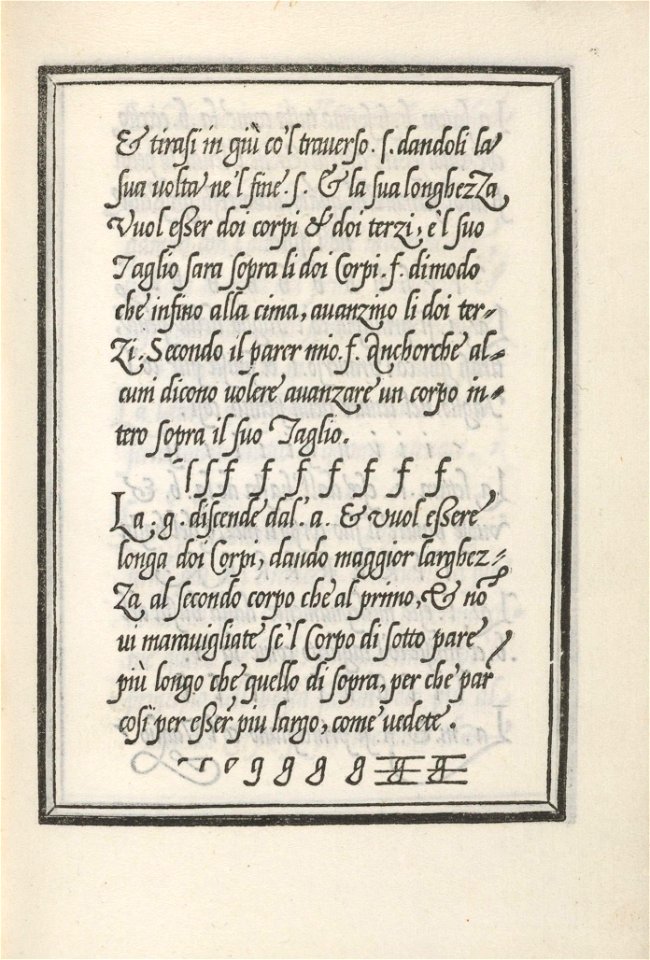 & tirasi in giù co'l trauerso. ſ. dandoli la
sua uolta ne'l fine. ſ. & la sua longhezza
Vuol eſser doi corpi & doi terzi, è'l suo
Taglio sara sopra li doi Corpi. f. dimodo
che infino alla cima, auanzino li doi ter-
zi. Secondo il parer mio. f. Anchorche al-
cuni dicono uolere auanzare un corpo in-
tero sopra il suo Taglio.
ſ ſ f f f f f f f
La . g . discende dal . a . & vuol eſsere
longa doi Corpi, dando maggior larghez-
za al secondo corpo che al primo, & nõ
ui marauigliate se'l Corpo di sotto pare
più longo che quello di sopra, per che par
cosi per eſser piu largo, come uedete .
g g g g g g